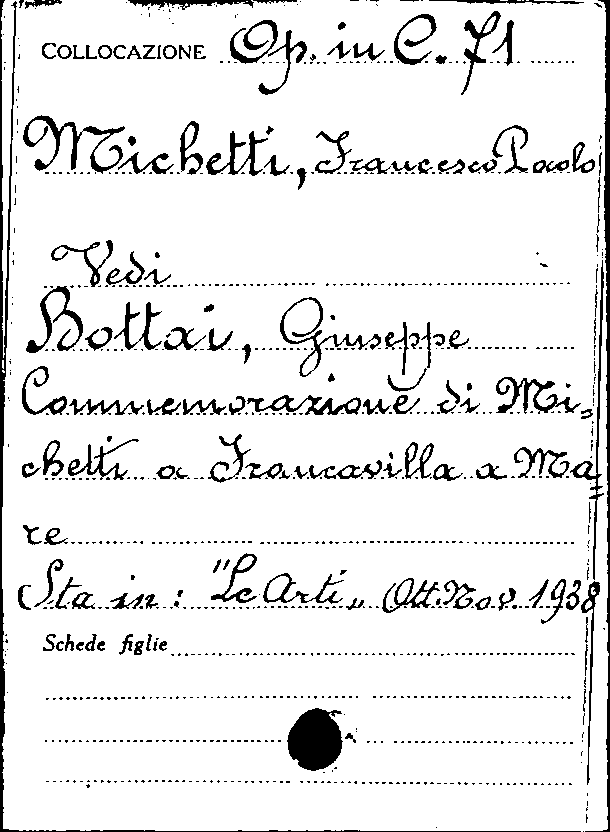 COLLOCAZIONE Op. in C. 71
Michetti, Francesco Paolo
Vedi
Bottai, Giuseppe
Commemorazione di Mi=
chetti a Francavilla a Ma=
re
Sta in: "Le Arti„ Ott. Nov. 1938
Schede figlie